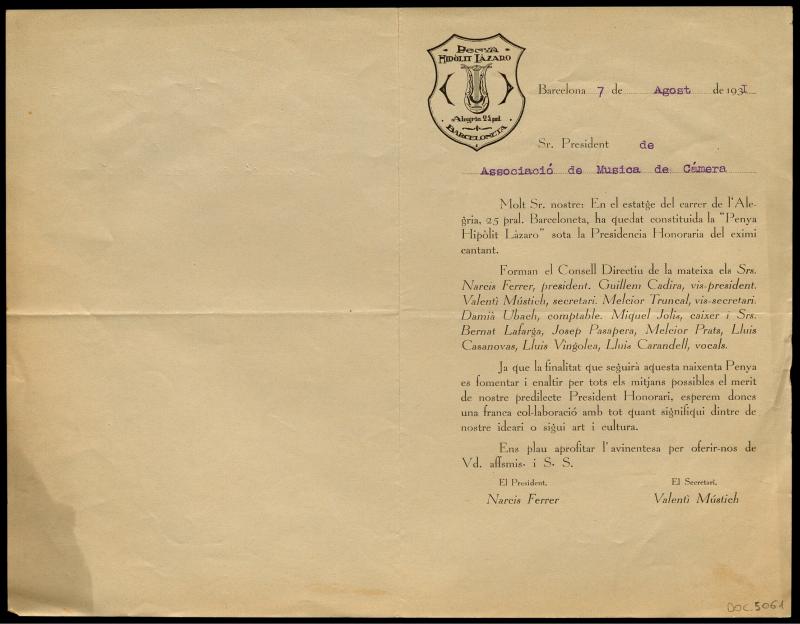 PENYA
HIPÒLIT LÀZARO
Alegria 25 pral.
BARCELONETA
Barcelona 7 de Agost de 1931
Sr. President de
Associació de Musica de Cámera
Molt Sr. nostre: En el estatge del carrer de l'Ale-
gria, 25 pral. Barceloneta, ha quedat constituida la "Penya
Hipòlit Làzaro" sota la Presidencia Honoraria del eximi
cantant.
Forman el Consell Directiu de la mateixa els Srs.
Narcis Ferrer, president. Guillem Cadira, vis-president.
Valentí Mústich, secretari. Melcior Truncal, vis-secretari.
Damià Ubach, comptable. Miquel Jolis, caixer i Srs.
Bernat Lafarga, Josep Pasapera, Melcior Prats, Lluis
Casanovas, Lluis Vingolea, Lluis Carandell, vocals.
Ja que la finalitat que seguirà aquesta naixenta Penya
es fomentar i enaltir per tots els mitjans possibles el merit
de nostre predilecte President Honorari, esperem doncs
una franca col·laboració amb tot quant signifiqui dintre de
nostre ideari o sigui art i cultura.
Ens plau aprofitar l'avinentesa per oferir-nos de
Vd. affsmis. i S. S.
El President,
El Secretari,
Narcis Ferrer
Valentì Mústich
DOC. 5061